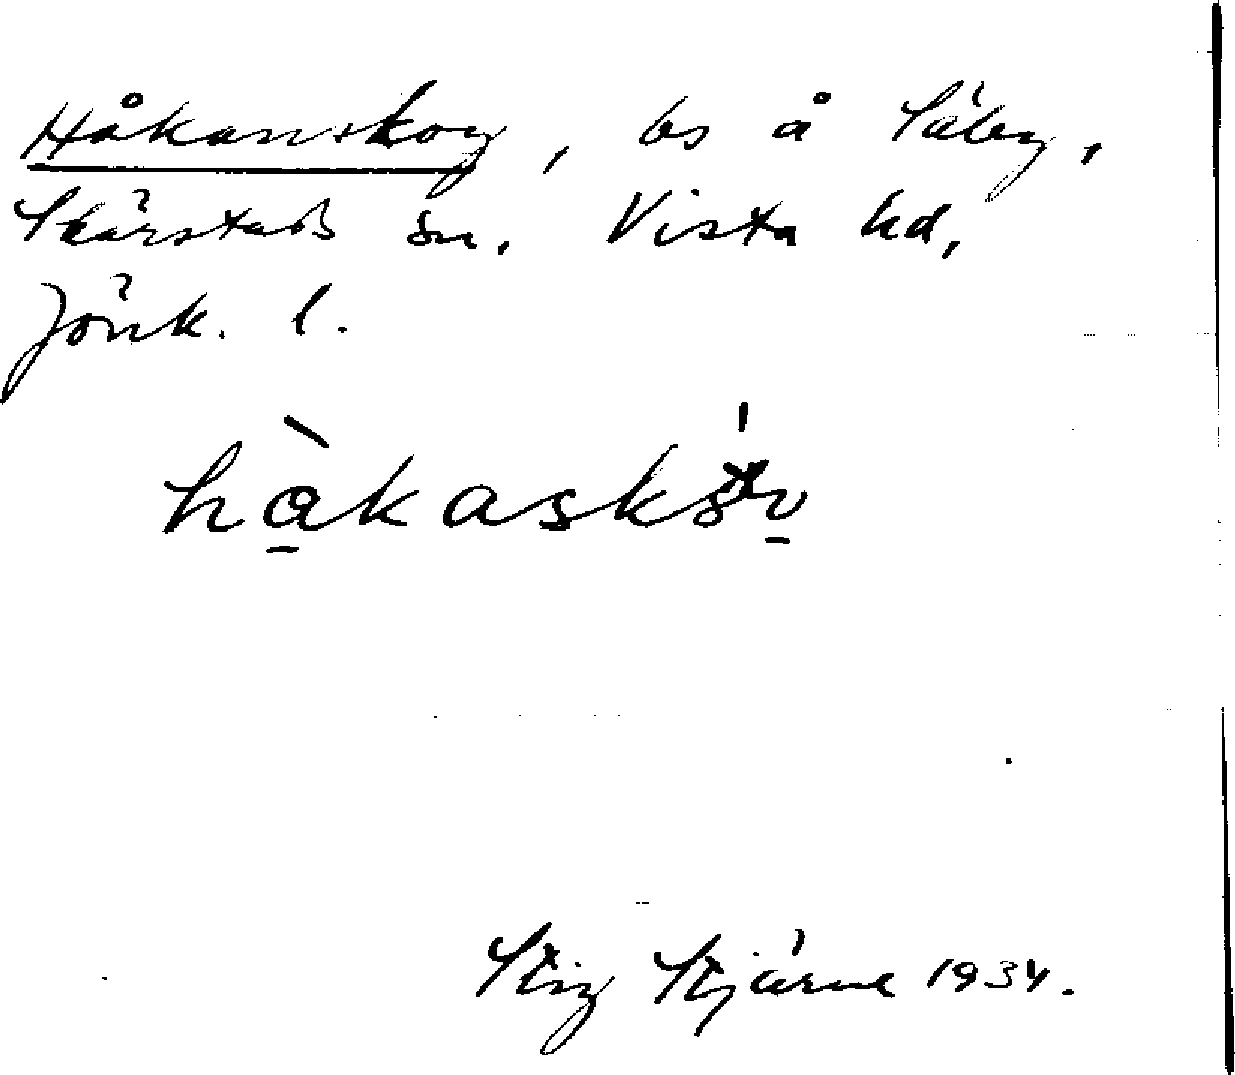 Håkanskog, bs å Säby,
Skärstads sn. Vista hd,
Jönk. l.
Stig Stjärne 1934.